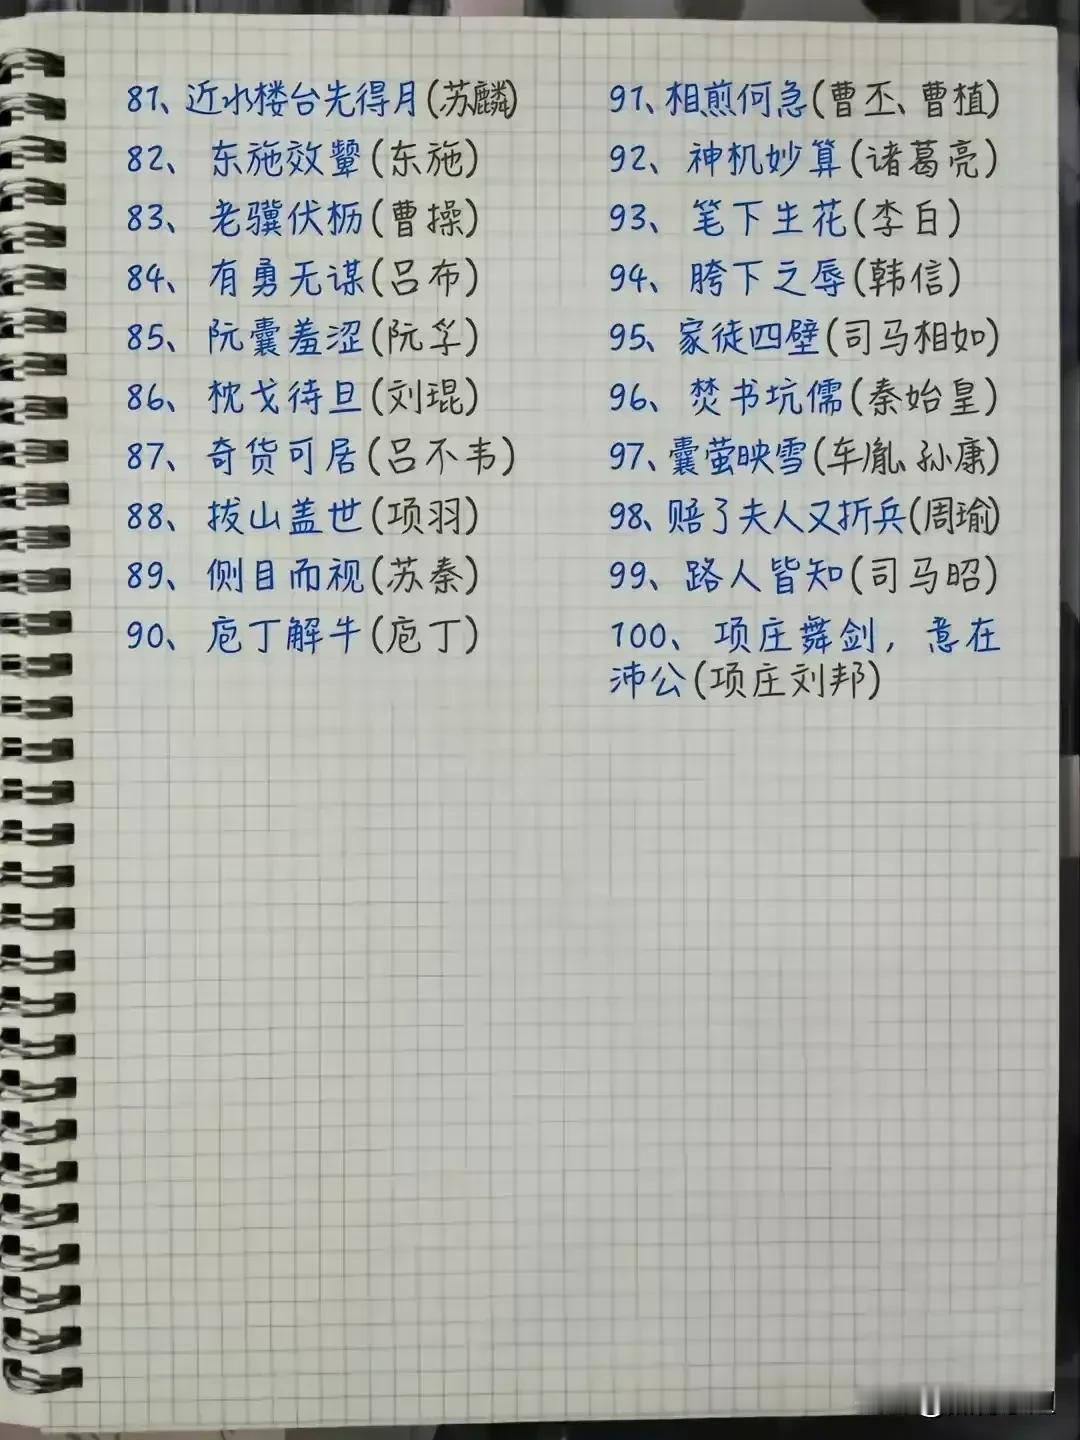 81、近水楼台先得月(苏麟)
82、东施效颦(东施)
83、老骥伏枥(曹操)
84、有勇无谋(吕布)
85、阮囊羞涩(阮孚)
86、枕戈待旦(刘琨)
87、奇货可居(吕不韦)
88、拔山盖世(项羽)
89、侧目而视(苏秦)
90、庖丁解牛(庖丁)
91、相煎何急(曹丕、曹植)
92、神机妙算(诸葛亮)
93、笔下生花(李白)
94、胯下之辱(韩信)
95、家徒四壁(司马相如)
96、焚书坑儒(秦始皇)
97、囊萤映雪(车胤、孙康)
98、赔了夫人又折兵(周瑜)
99、路人皆知(司马昭)
100、项庄舞剑，意在
沛公(项庄刘邦)